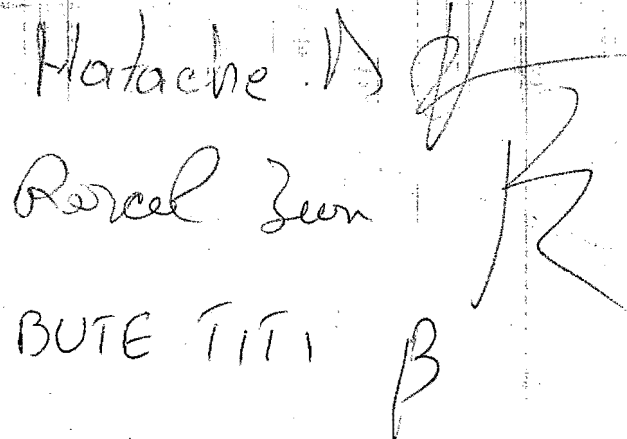 Hatache D
Rorcel Zeon
BUTE TITI